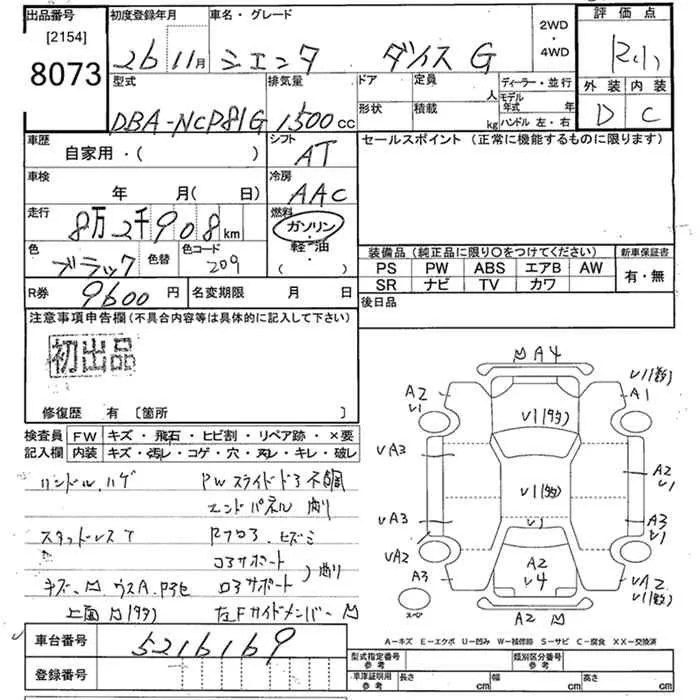 出品番号
[2154]
8073
初度登録年月
26 11月
車名・グレード
シエンタ ダイス G
2WD
・
4WD
評価点
R小
外装 内装
D C
型式
DBA-NCP81G
排気量
1500cc
ドア
定員
人
ディーラー・並行
形状
積載
kg
モデル年式 年
ハンドル 左・右
車歴
自家用・( )
シフト
AT
セールスポイント (正常に機能するものに限ります)
車検
年 月( 日)
冷房
AAC
走行
8万2千908km
燃料
ガソリン
軽・油
( ・ )
色
ブラック
色替
色コード
209
装備品 (純正品に限り○をつけてください)
PS PW ABS エアB AW
SR ナビ TV カワ
新車保証書
有・無
R券 9600円
名変期限 月 日
後日品
注意事項申告欄(不具合内容等は具体的に記入して下さい)
初出品
修復歴 有 〔箇所 〕
検査員記入欄
FW キズ・飛石・ヒビ割・リペア跡・×要
内装 キズ・汚レ・コゲ・穴・スレ・キレ・破レ
ハンドル.ハゲ PWスライドドア不調
エンドパネル 凹り
スタッドレスT Rフロア.ヒズミ
コアサポート
キズ. 凹. ウスA. Pヨセ ロアサポート
上面 凹 左Fサイドメンバー 凹
凹 A4
A2 V1
V1(多)
A1
V1(多)
VA3
V1(多)
A2 V1
VA3
V1
A3 V1
VA2
A3
A2 V4
VA2
V1(多)
スペア
A2 凹
A-キズ E-エクボ U-凹み W-補修跡 S-サビ C-腐食 XX-交換済
車台番号 5216169
登録番号
型式指定番号 参考
類別区分番号 参考
車庫証明用 参考
長さ cm
幅 cm
高さ cm